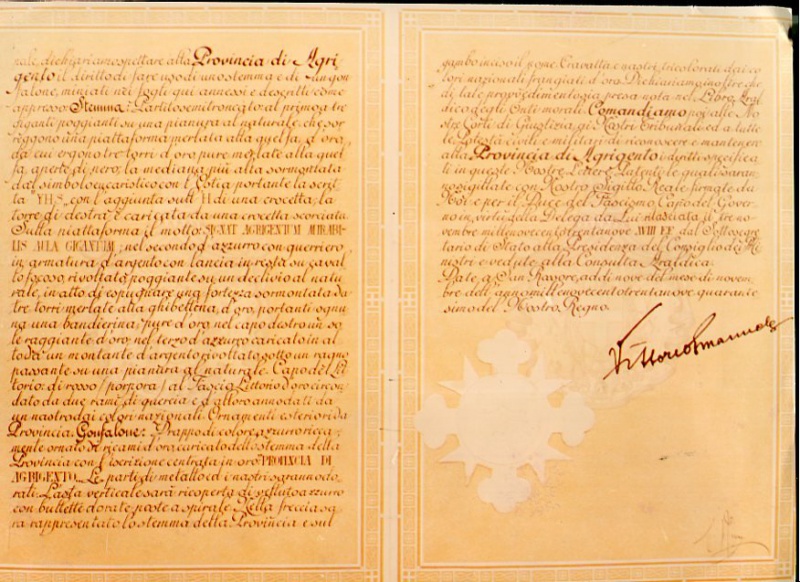 nale, dichiariamo spettare alla Provincia di Agri
gento il diritto di fare uso di uno stemma e di un gon
falone, miniati nei fogli qui annessi e descritti come
appresso: Stemma: Partito semitroncato: al primo a tre
giganti poggianti su una pianura al naturale, che sor
reggono una piattaforma merlata alla guelfa, d'oro,
da cui ergono tre torri d'oro pure merlate alla guel
fa, aperte di nero; la mediana più alta sormontata
dal simbolo eucaristico con l'Ostia portante la scrit
ta "YHS" con l'aggiunta sull'H di una crocetta; la
torre di destra è caricata da una crocetta scorciata
Sulla piattaforma il motto: SIGNAT AGRIGENTUM MIRABI
LIS AULA GIGANTUM; nel secondo d'azzurro con guerriero
in armatura d'argento con lancia in resta su caval
lo focoso, rivoltato, poggiante su un declivio al natu
rale, in atto di espugnare una fortezza sormontata da
tre torri merlate alla ghibellina, d'oro, portanti ognu
na una bandierina; pure d'oro, nel capo destro un so
le raggiante d'oro; nel terzo d'azzurro caricato in al
to da un montante d'argento rivoltato sotto un ragno
passante su una pianura al naturale. Capo del Lit
torio: di rosso (porpora) al Fascio Littorio d'oro circon
dato da due rami di quercia e d'alloro annodati da
un nastro dai colori nazionali. Ornamenti esteriori da
Provincia. Gonfalone: Drappo di colore azzurro ricca
mente ornato di ricami d'oro, caricato dello stemma della
Provincia con l'iscrizione centrata in oro: PROVINCIA DI
AGRIGENTO. Le parti di metallo ed i nastri saranno do
rati. L'asta verticale sarà ricoperta di velluto azzurro
con bullette dorate poste a spirale. Nella freccia sa
rà rappresentato lo stemma della Provincia e sul
gambo inciso il nome. Cravatta e nastri tricolorati dai co
lori nazionali frangiati d'oro. Dichiariamo inoltre che
di tale provvedimento sia presa nota nel Libro Aral
dico degli Enti morali. Comandiamo poi alle No
stre Corti di Giustizia, ai Nostri Tribunali ed a tutte
le Potestà civili e militari di riconoscere e mantenere
alla Provincia di Agrigento i diritti specifica
ti in queste Nostre Lettere Patenti, le quali saran
no sigillate con Nostro Sigillo Reale firmate da
Noi e per il Duce del Fascismo, Capo del Gover
no in virtù della Delega da Lui rilasciata il tre no
vembre millenovecentotrentanove, XVIII E.F. dal Sottosegre
tario di Stato alla Presidenza del Consiglio dei Mi
nistri e vedute alla Consulta Araldica.
Date a San Rossore, addì nove del mese di novem
bre dell'anno millenovecentotrentanove, quarante
simo del Nostro Regno.
Vittorio Emanuele